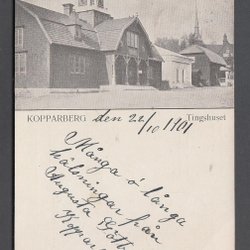 KOPPARBERG den 22/10 1901 Tingshuset
Många o' långa
hälsningar från
Augusta